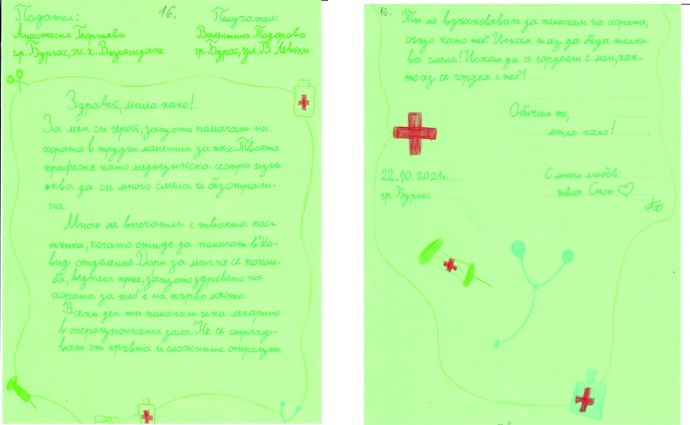 Подател:
16.
Получател:
Анастасия Георгиева
Валентина Тодорова
гр. Бургас, ж.к. Възраждане
гр. Бургас, ул. В. Левски
Здравей, мила како!
За мен си герой, защото помагаш на
хората в трудни моменти за тях. Твоята
професия като медицинска сестра изис-
ква да си много смела и безстраш-
на.
Много ме впечатли с твоята пос-
тъпка, когато отиде да помагаш в Ко-
вид отделения. Дори за миг не се поколе-
ба, веднага прие, защото здравето на
хората за теб е на първо място.
Всеки ден ти помагаш и на лекарите
в операционната зала. Не се страху-
ваш от кръвта и сложните операции.
16.
Ти ме вдъхновяваш да помагам на хората,
също като теб! Искам и аз да бъда толко-
ва смела! Искам да се гордееш с мен, как-
то аз се гордея с теб!
Обичам те,
мила како!
22.10.2021г.
гр. Бургас
С много любов:
твоя